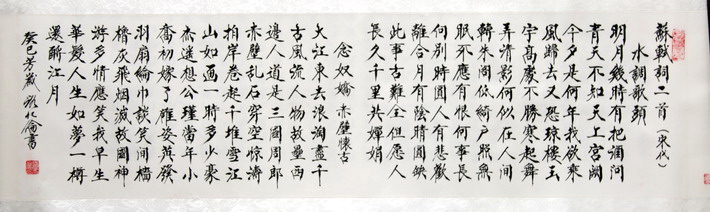 蘇軾詞二首（宋代）
水調歌頭
明月幾時有把酒問
青天不知天上宮闕
今夕是何年我欲乘
風歸去又恐瓊樓玉
宇高處不勝寒起舞
弄清影何似在人間
轉朱閣低綺戶照無
眠不應有恨何事長
向別時圓人有悲歡
離合月有陰晴圓缺
此事古難全但愿人
長久千里共嬋娟
念奴嬌 赤壁懷古
大江東去浪淘盡千
古風流人物故壘西
邊人道是三國周郎
赤壁乱石穿空驚濤
拍岸卷起千堆雪江
山如画一時多少豪
杰遙想公瑾當年小
喬初嫁了雄姿英發
羽扇綸巾談笑間檣
櫓灰飛烟滅故國神
游多情應笑我早生
華髮人生如夢一樽
還酹江月
癸巳芳歲 書